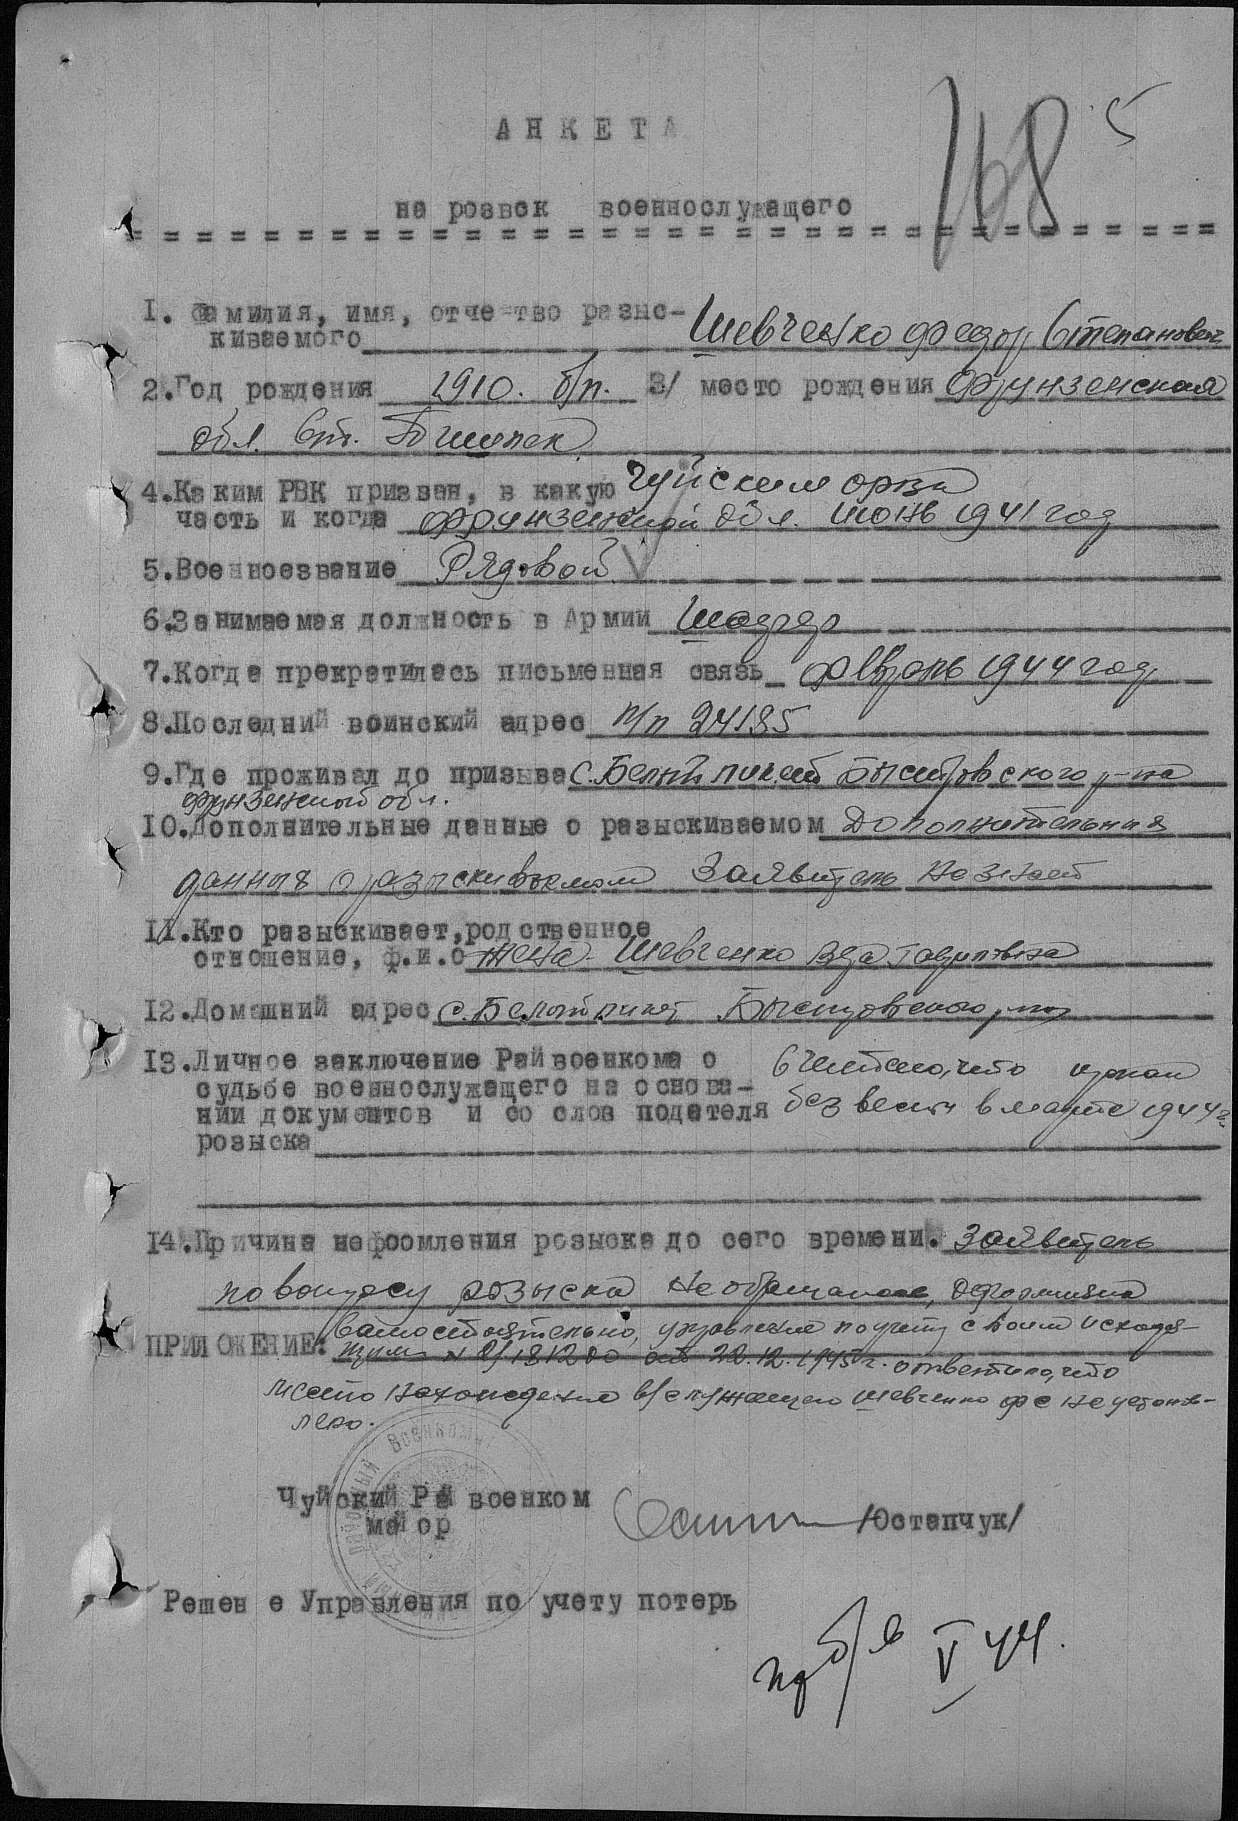 168 5
АНКЕТА
на розыск военнослужащего
= = = = = = = = = = = = = = = = = = = = = = = = = = = = = = = =
1. Фамилия, имя, отчество разыс-
киваемого Шевченко Федор Степанович
2. Год рождения 1910. б/п. 3/ место рождения Фрунзенская
обл. ст. Пишпек
4. Каким РВК призван, в какую Чуйским
часть и когда Фрунзенской обл. июнь 1941 год
5. Военноезвание Рядовой
6. Занимаемая должность в Армии
7. Когда прекратилась письменная связь 1944 год
8. Последний воинский адрес п/п 24185
9. Где проживал до призыва с. Белый пикет Быстровского р-на
Фрунзенской обл.
10. Дополнительные данные о разыскиваемом Дополнительния
данныя о разыскиваемом Заявитель не знает
11. Кто разыскивает, родственное
отношение, ф.и.о жена - Шевченко Вера Гавриловна
12. Домашний адрес с. Белый пикет Быстровского
13. Личное заключение Райвоенкома о
судьбе военнослужащего на основа-
нии документов и со слов подателя
розыска
считаю, что пропал
без вести в марте 1944 г.
14. Причина нефоомления розыска до сего времени. Заявитель
по вопросу розыска не
ПРИЛОЖЕНИЕ: самостоятельно, управление по учету своим исходя-
щим № 22.12.1945 г. ответило, что
место нахождение в/служащего Шевченко ФС не установ-
лено.
Чуйский Рай военком
майор /Остапчук/
Решен е Управления по учету потерь
пр б/в V 44.